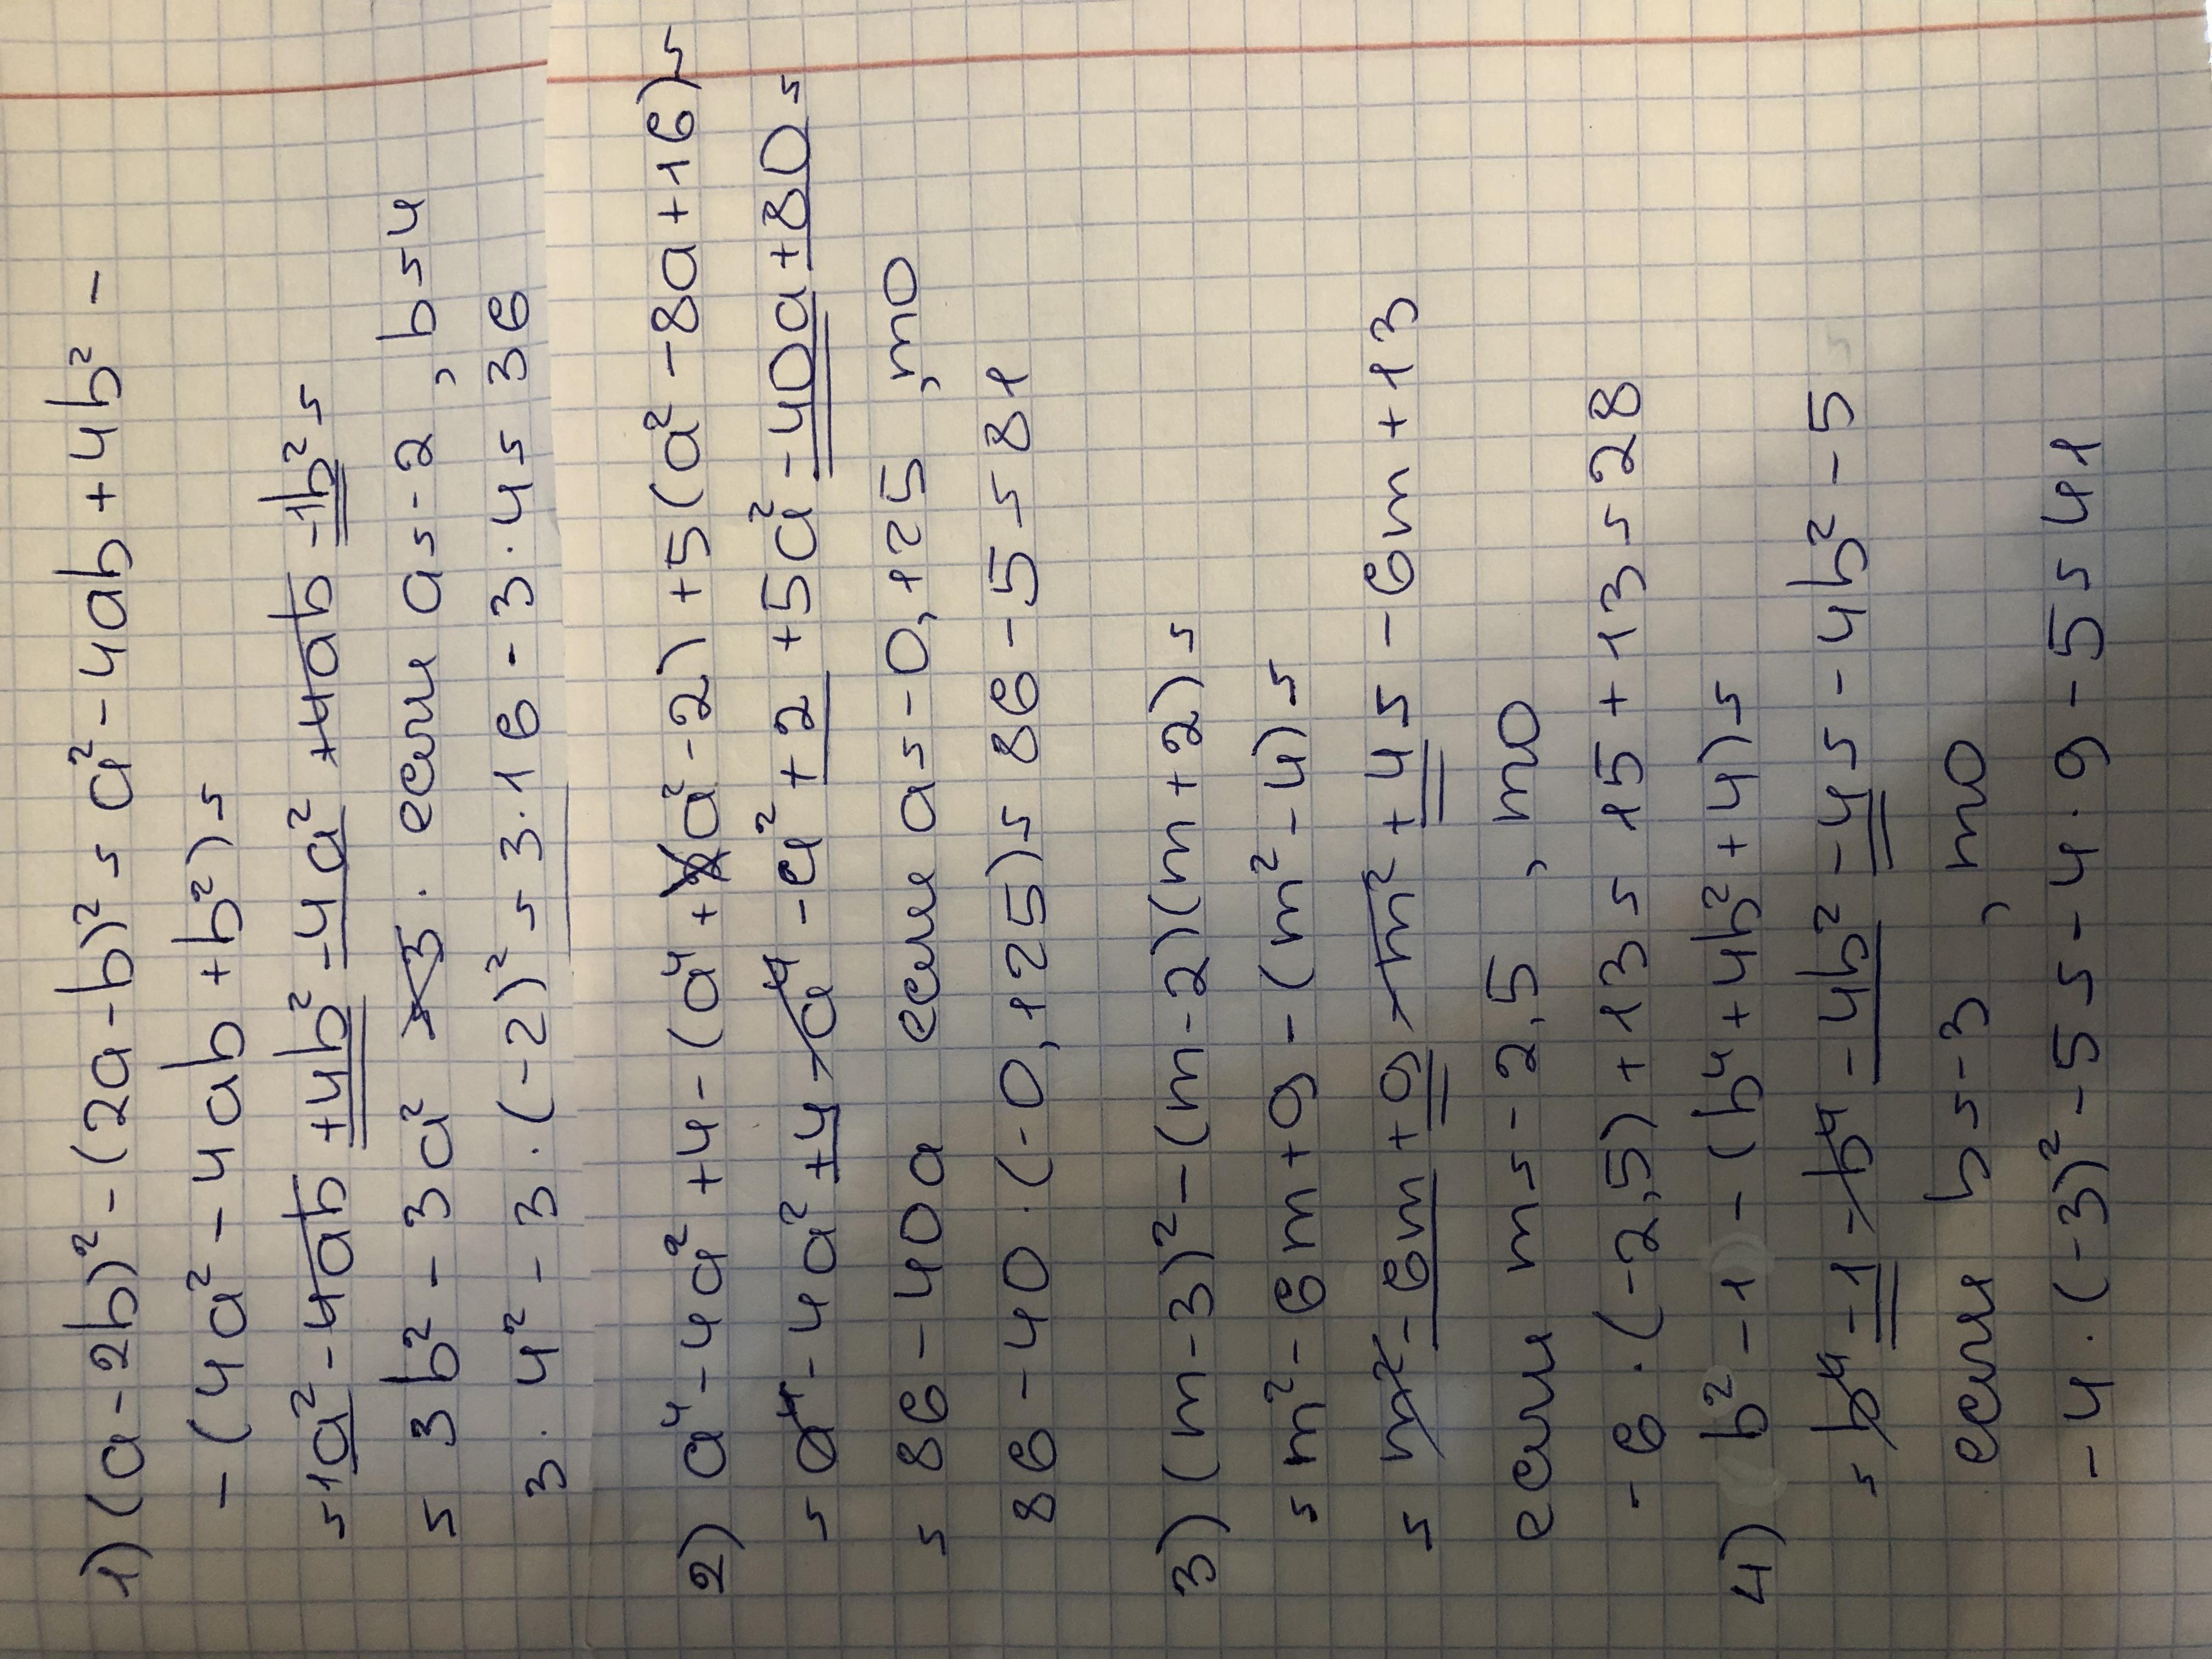 1) (a-2b)² - (2a-b)² = a² - 4ab + 4b² -
- (4a² - 4ab + b²) =
= 1a² - 4ab + 4b² - 4a² + 4ab - 1b² =
= 3b² - 3a² . если a = -2, b = 4
3 · 4² - 3 · (-2)² = 3 · 16 - 3 · 4 = 36
2) a⁴ - 4a² + 4 - (a⁴ + a² - 2) + 5(a² - 8a + 16) =
= a⁴ - 4a² + 4 - a⁴ - a² + 2 + 5a² - 40a + 80 =
= 86 - 40a если a = -0,125, то
86 - 40 · (-0,125) = 86 - 5 = 81
3) (m-3)² - (m-2)(m+2) =
= m² - 6m + 9 - (m² - 4) =
= m² - 6m + 9 - m² + 4 = -6m + 13
если m = -2,5, то
-6 · (-2,5) + 13 = 15 + 13 = 28
4) b² - 1 - (b⁴ + 4b² + 4) =
= b⁴ - 1 - b⁴ - 4b² - 4 = -4b² - 5
если b = -3, то
-4 · (-3)² - 5 = -4 · 9 - 5 = 41